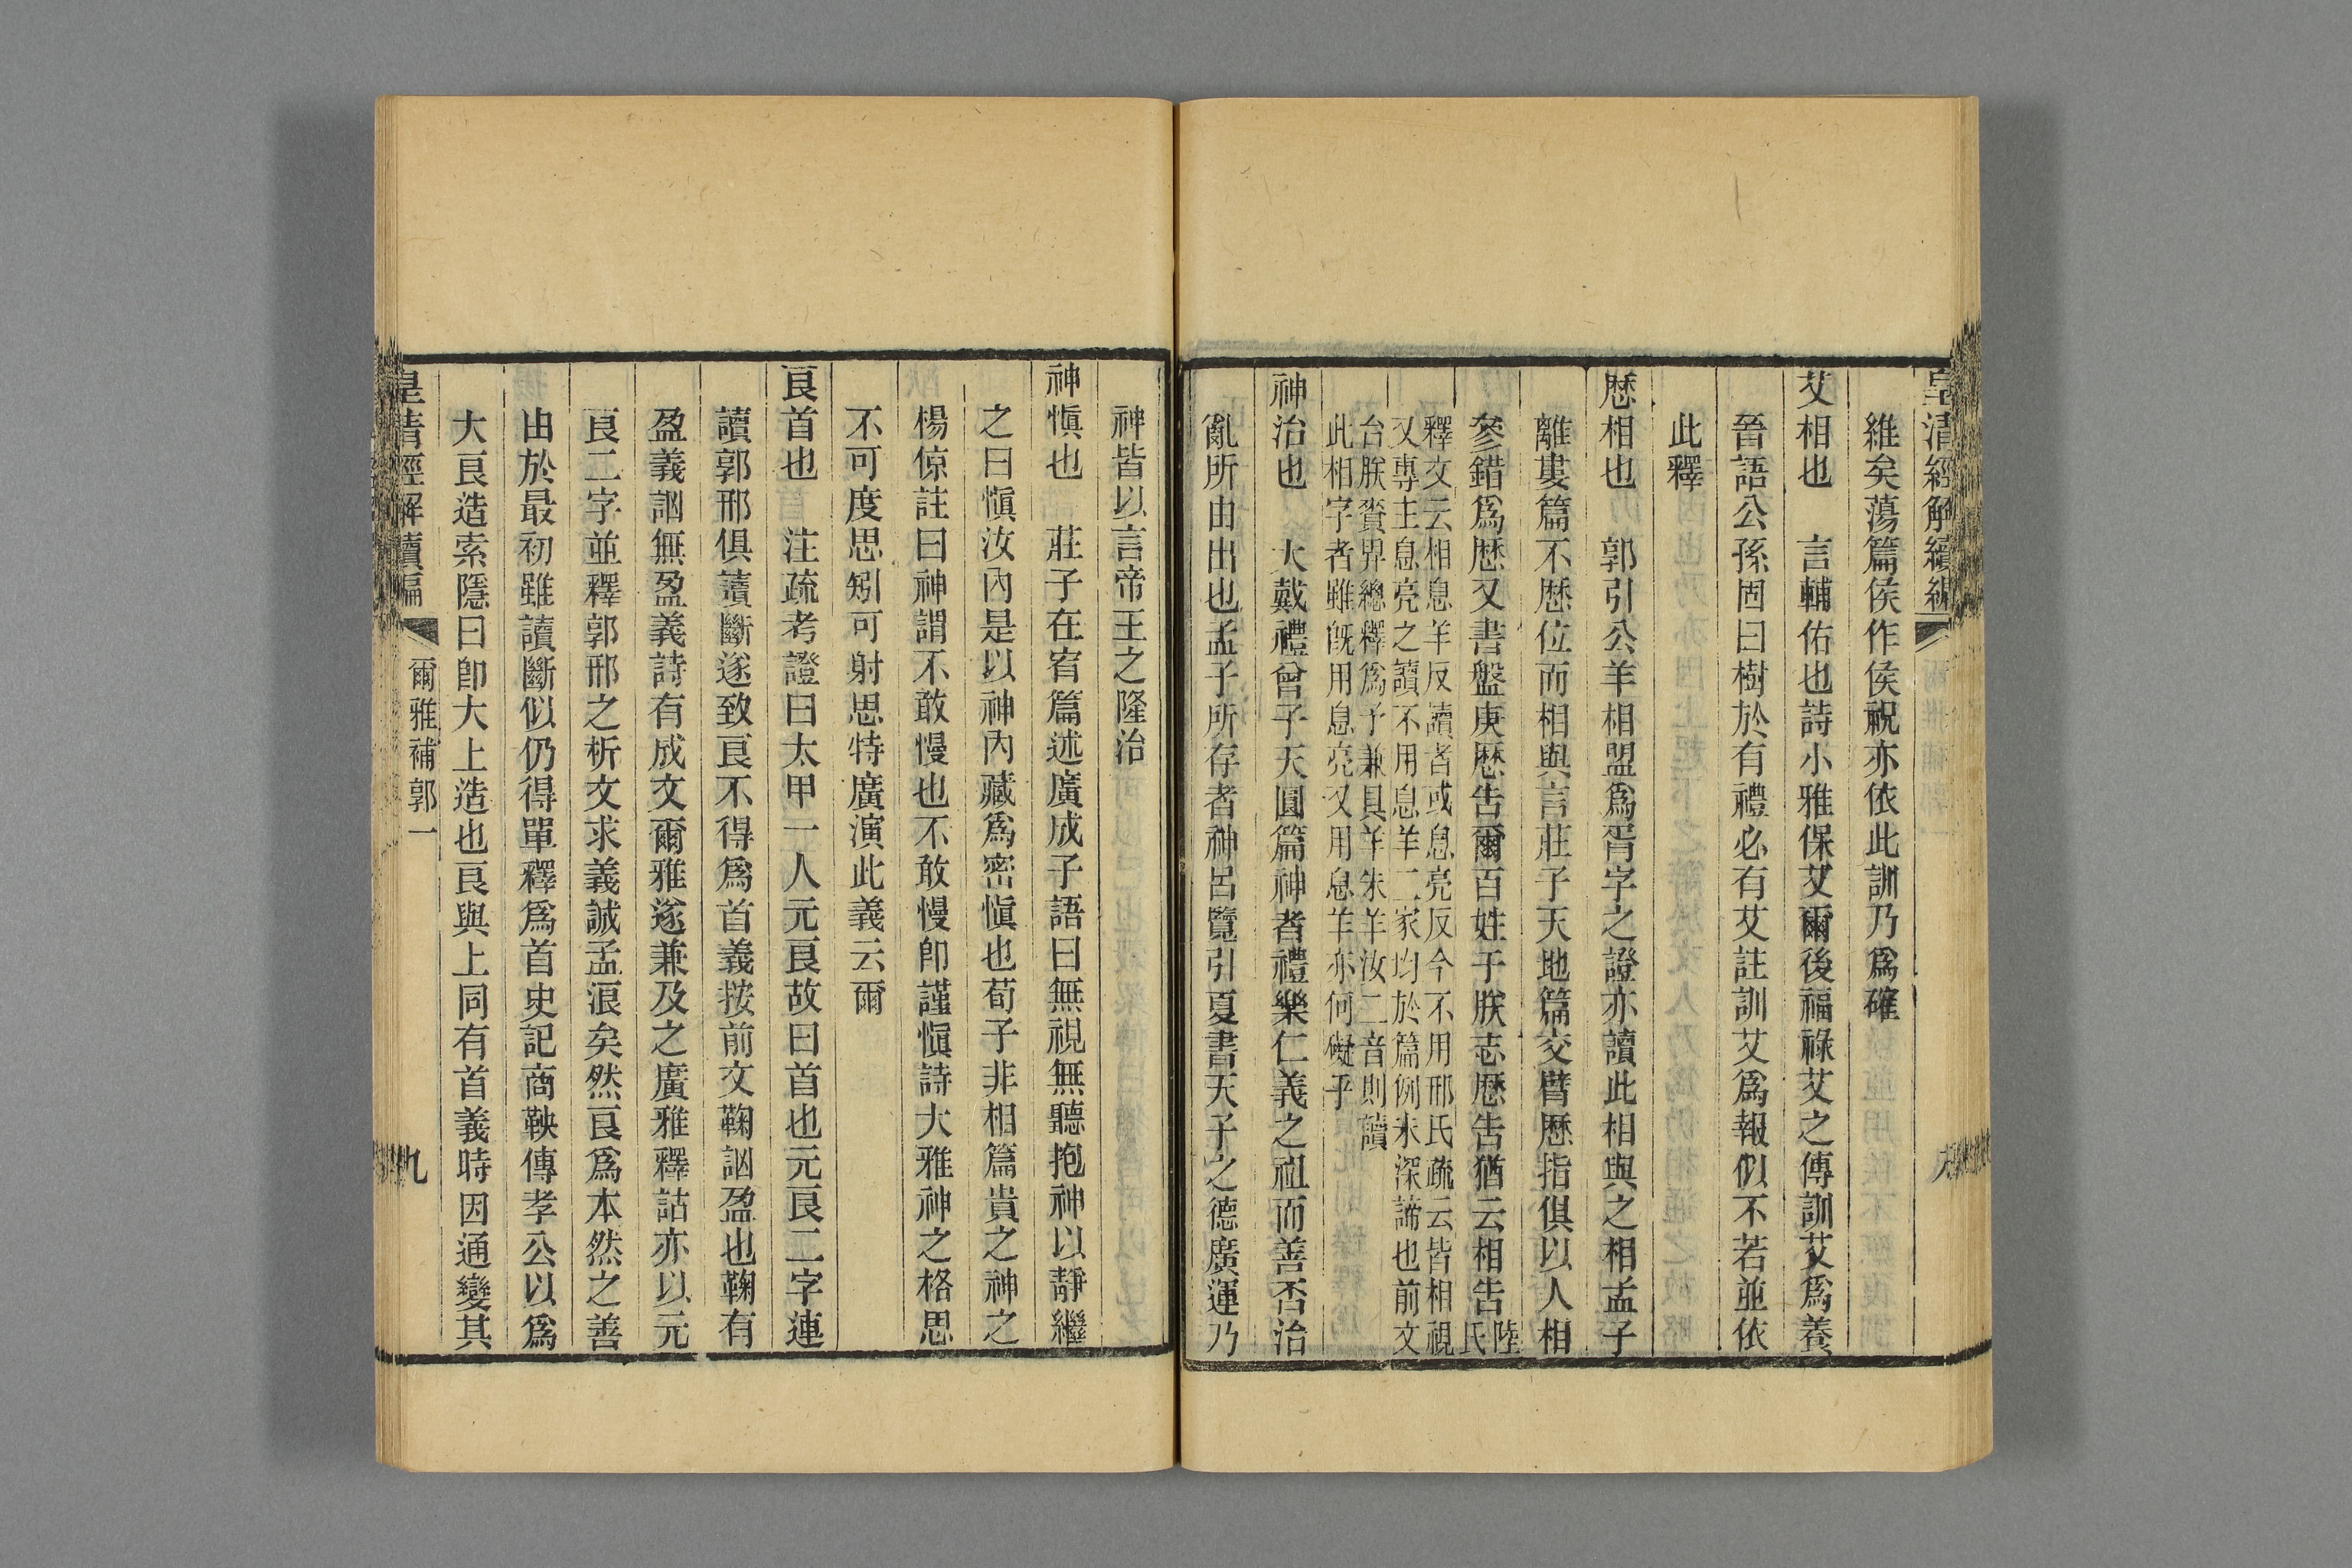 皇清經解續編
維矣蕩篇侯作侯祝亦依此訓乃爲確
艾相也　言輔佑也詩小雅保艾爾後福祿艾之傳訓艾爲養
晉語公孫固曰樹於有禮必有艾註訓艾爲報似不若並依
此釋
歷相也　郭引公羊相盟爲胥字之證亦讀此相與之相孟子
離婁篇不歷位而相與言莊子天地篇交臂歷指俱以人相
參錯爲歷又書盤庚歷告爾百姓于朕志歷告猶云相告陸氏
釋文云相息羊反讀者或息亮反今不用邢氏疏云皆相視
又專主息亮之讀不用息羊二家均於篇例未深諦也前文
台朕賚畀總釋爲予兼具羊朱羊汝二音則讀
此相字者雖旣用息亮又用息羊亦何礙乎
神治也　大戴禮曾子天圓篇神者禮樂仁義之祖而善否治
亂所由出也孟子所存者神呂覽引夏書天子之德廣運乃
神皆以言帝王之隆治
神愼也　莊子在宥篇述廣成子語曰無視無聽抱神以靜繼
之曰愼汝內是以神內藏爲密愼也荀子非相篇貴之神之
楊倞註曰神謂不敢慢也不敢慢卽謹愼詩大雅神之格思
不可度思矧可射思特廣演此義云爾
良首也　注疏考證曰太甲一人元良故曰首也元良二字連
讀郭邢俱讀斷遂致良不得爲首義按前文鞠訩盈也鞠有
盈義訩無盈義詩有成文爾雅遂兼及之廣雅釋詁亦以元
良二字並釋郭邢之析文求義誠孟浪矣然良爲本然之善
由於最初雖讀斷似仍得單釋爲首史記商鞅傳孝公以爲
大良造索隱曰卽大上造也良與上同有首義時因通變其
皇清經解續編
爾雅補郭一
九